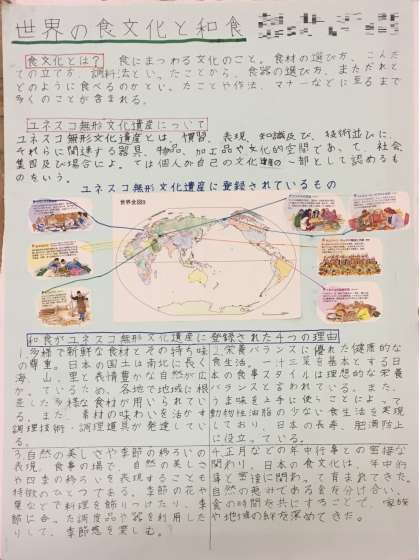 世界の食文化と和食
食文化とは? 食にまつわる文化のこと。食材の選び方、こんだ
ての立て方、調料法といったことから、食器の選び方、まただれと
どのように食べるのかといったことや作法、マナーなどに至るまで
多くのことが含まれる。
ユネスコ無形文化遺産について
ユネスコ無形文化遺産とは、慣習、表現、知識及び、技術並びに、
それらに関連する器具、物品、加工品や文化的空間であって、社会
集団及び場合によっては個人が自己の文化遺産の一部として認めるも
のをいう。
ユネスコ無形文化遺産に登録されているもの
世界全図
和食がユネスコ無形文化遺産に登録された4つの理由
1.多様で新鮮な食材とその持ち味
の尊重。日本の国土は南北に長く
海、山、里と表情豊かな自然が広
がっているため、各地で地域に根
差した多様な食材が用いられてい
る。また、素材の味わいを活かす
調理技術・調理道具が発達してい
る。
2.栄養バランスに優れた健康的な
食生活。一汁三菜を基本とする日
本の食事スタイルは理想的な栄養
バランスと言われている。また、
うま味を上手に使うことによって
動物性油脂の少ない食生活を実現
しており、日本の長寿、肥満防止
に役立っている。
3.自然の美しさや季節の移ろいの
表現。食事の場で、自然の美しさ
や四季の移ろいを表現することも
特徴のひとつである。季節の花や
葉などで料理を飾りつけたり、季
節に合った調度品や器を利用した
りして、季節感を楽しむ。
4.正月などの年中行事との密接な
関わり。日本の食文化は、年中行
事と密接に関わって育まれてきた。
自然の恵みである食を分け合い、
食の時間を共にすることで、家族
や地域の絆を深めてきた。